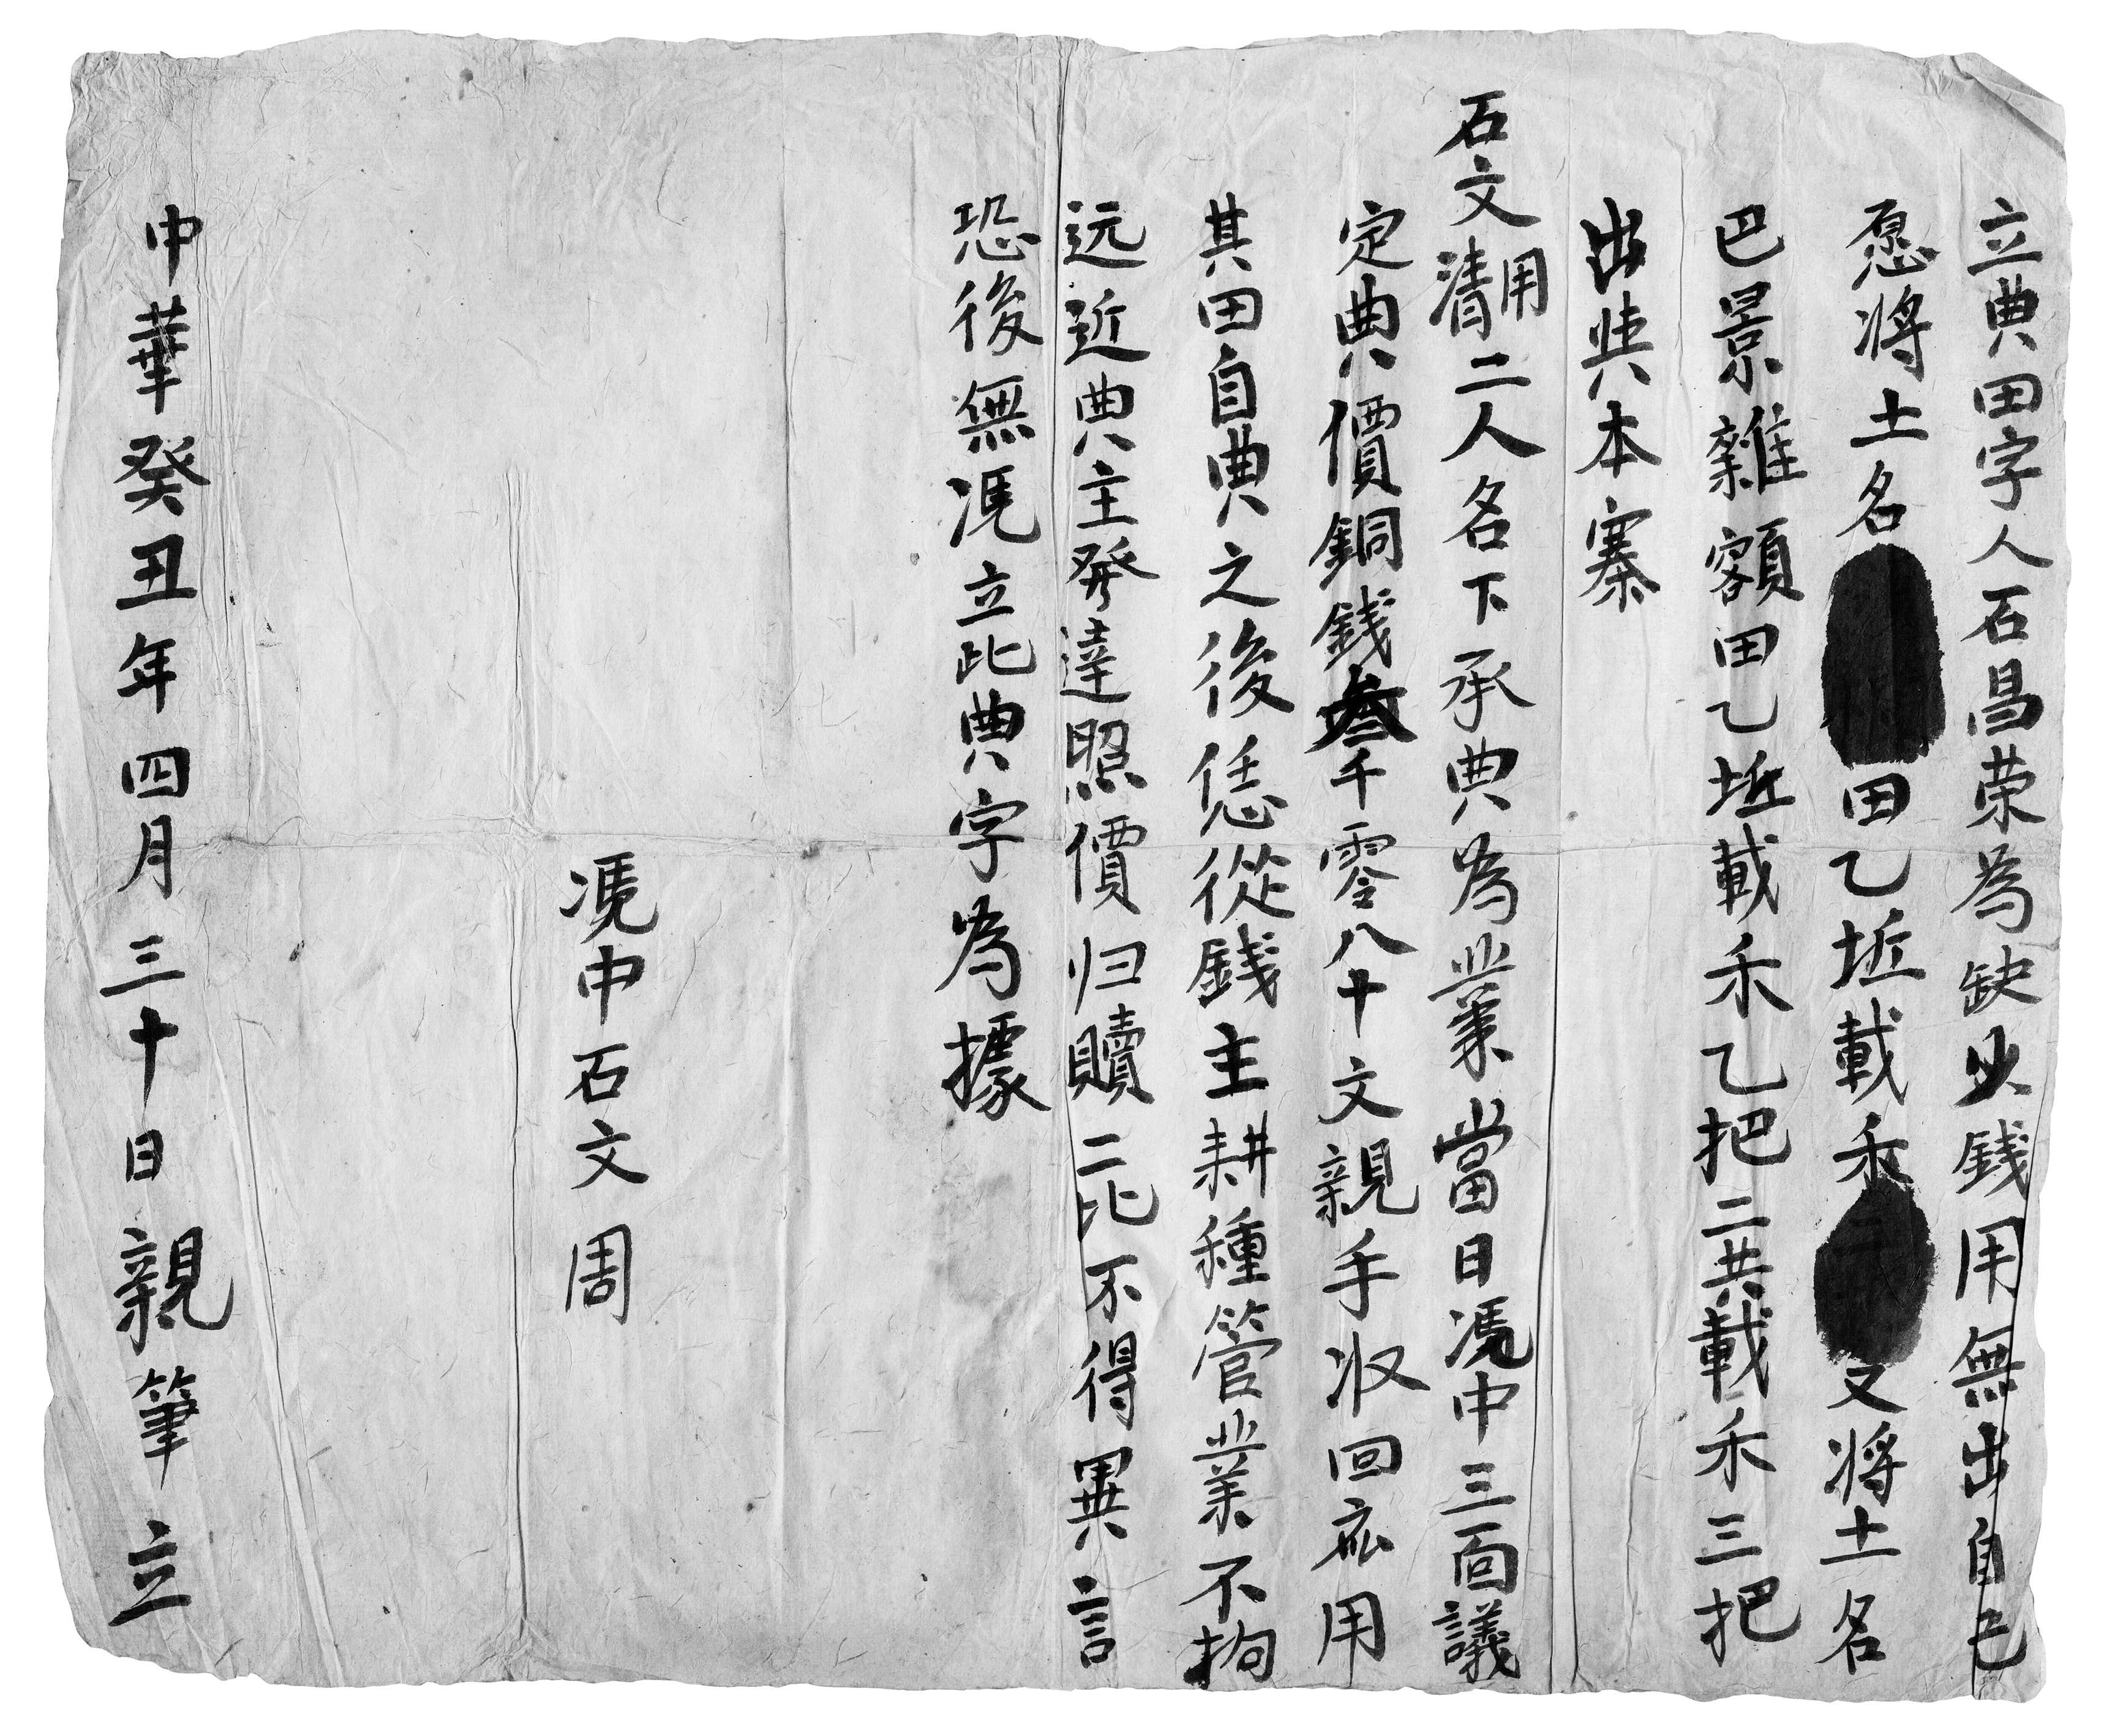 立典田字人石昌荣為缺少錢用無出自己
愿将土名田乙坵載禾又将土名
巴景雜額田乙坵載禾乙把二共載禾三把
出典本寨
石文清用二人名下承典為業當日馮中三面議
定典價銅錢叁千零八十文親手收回應用
其田自典之後恁從錢主耕種管業不拘
远近典主發達照價归贖二比不得異言
恐後無馮立此典字為據
馮中石文周
中華癸丑年四月三十日親筆立